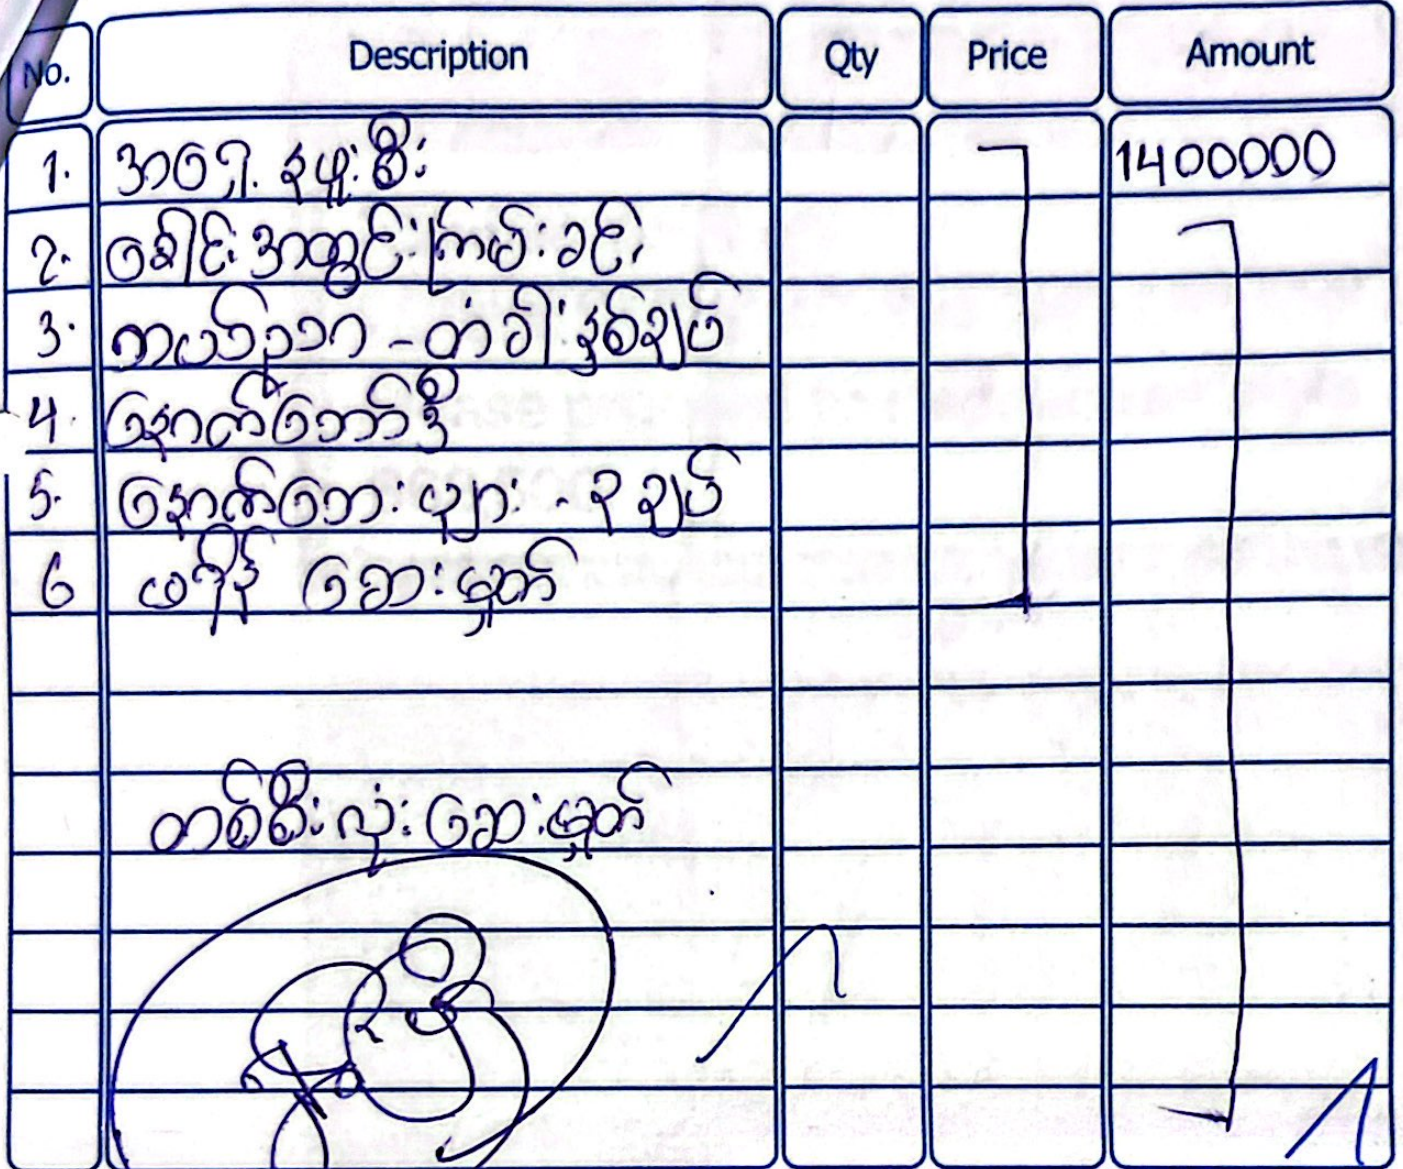 No. Description Qty Price Amount
1. အရှေ့ နဖူးစီး 1400000
2. ခေါင်းအတွင်းကြမ်းခင်း
3. ကယ်ဥသာ - တံခါးနှစ်ချပ်
4. နောက်ဘော်ဒီ
5. နောက်ဘေးများ - ၃ ချပ်
6 ဖရိန် ဆေးမှုတ်
တစ်စီးလုံး ဆေးမှုတ်